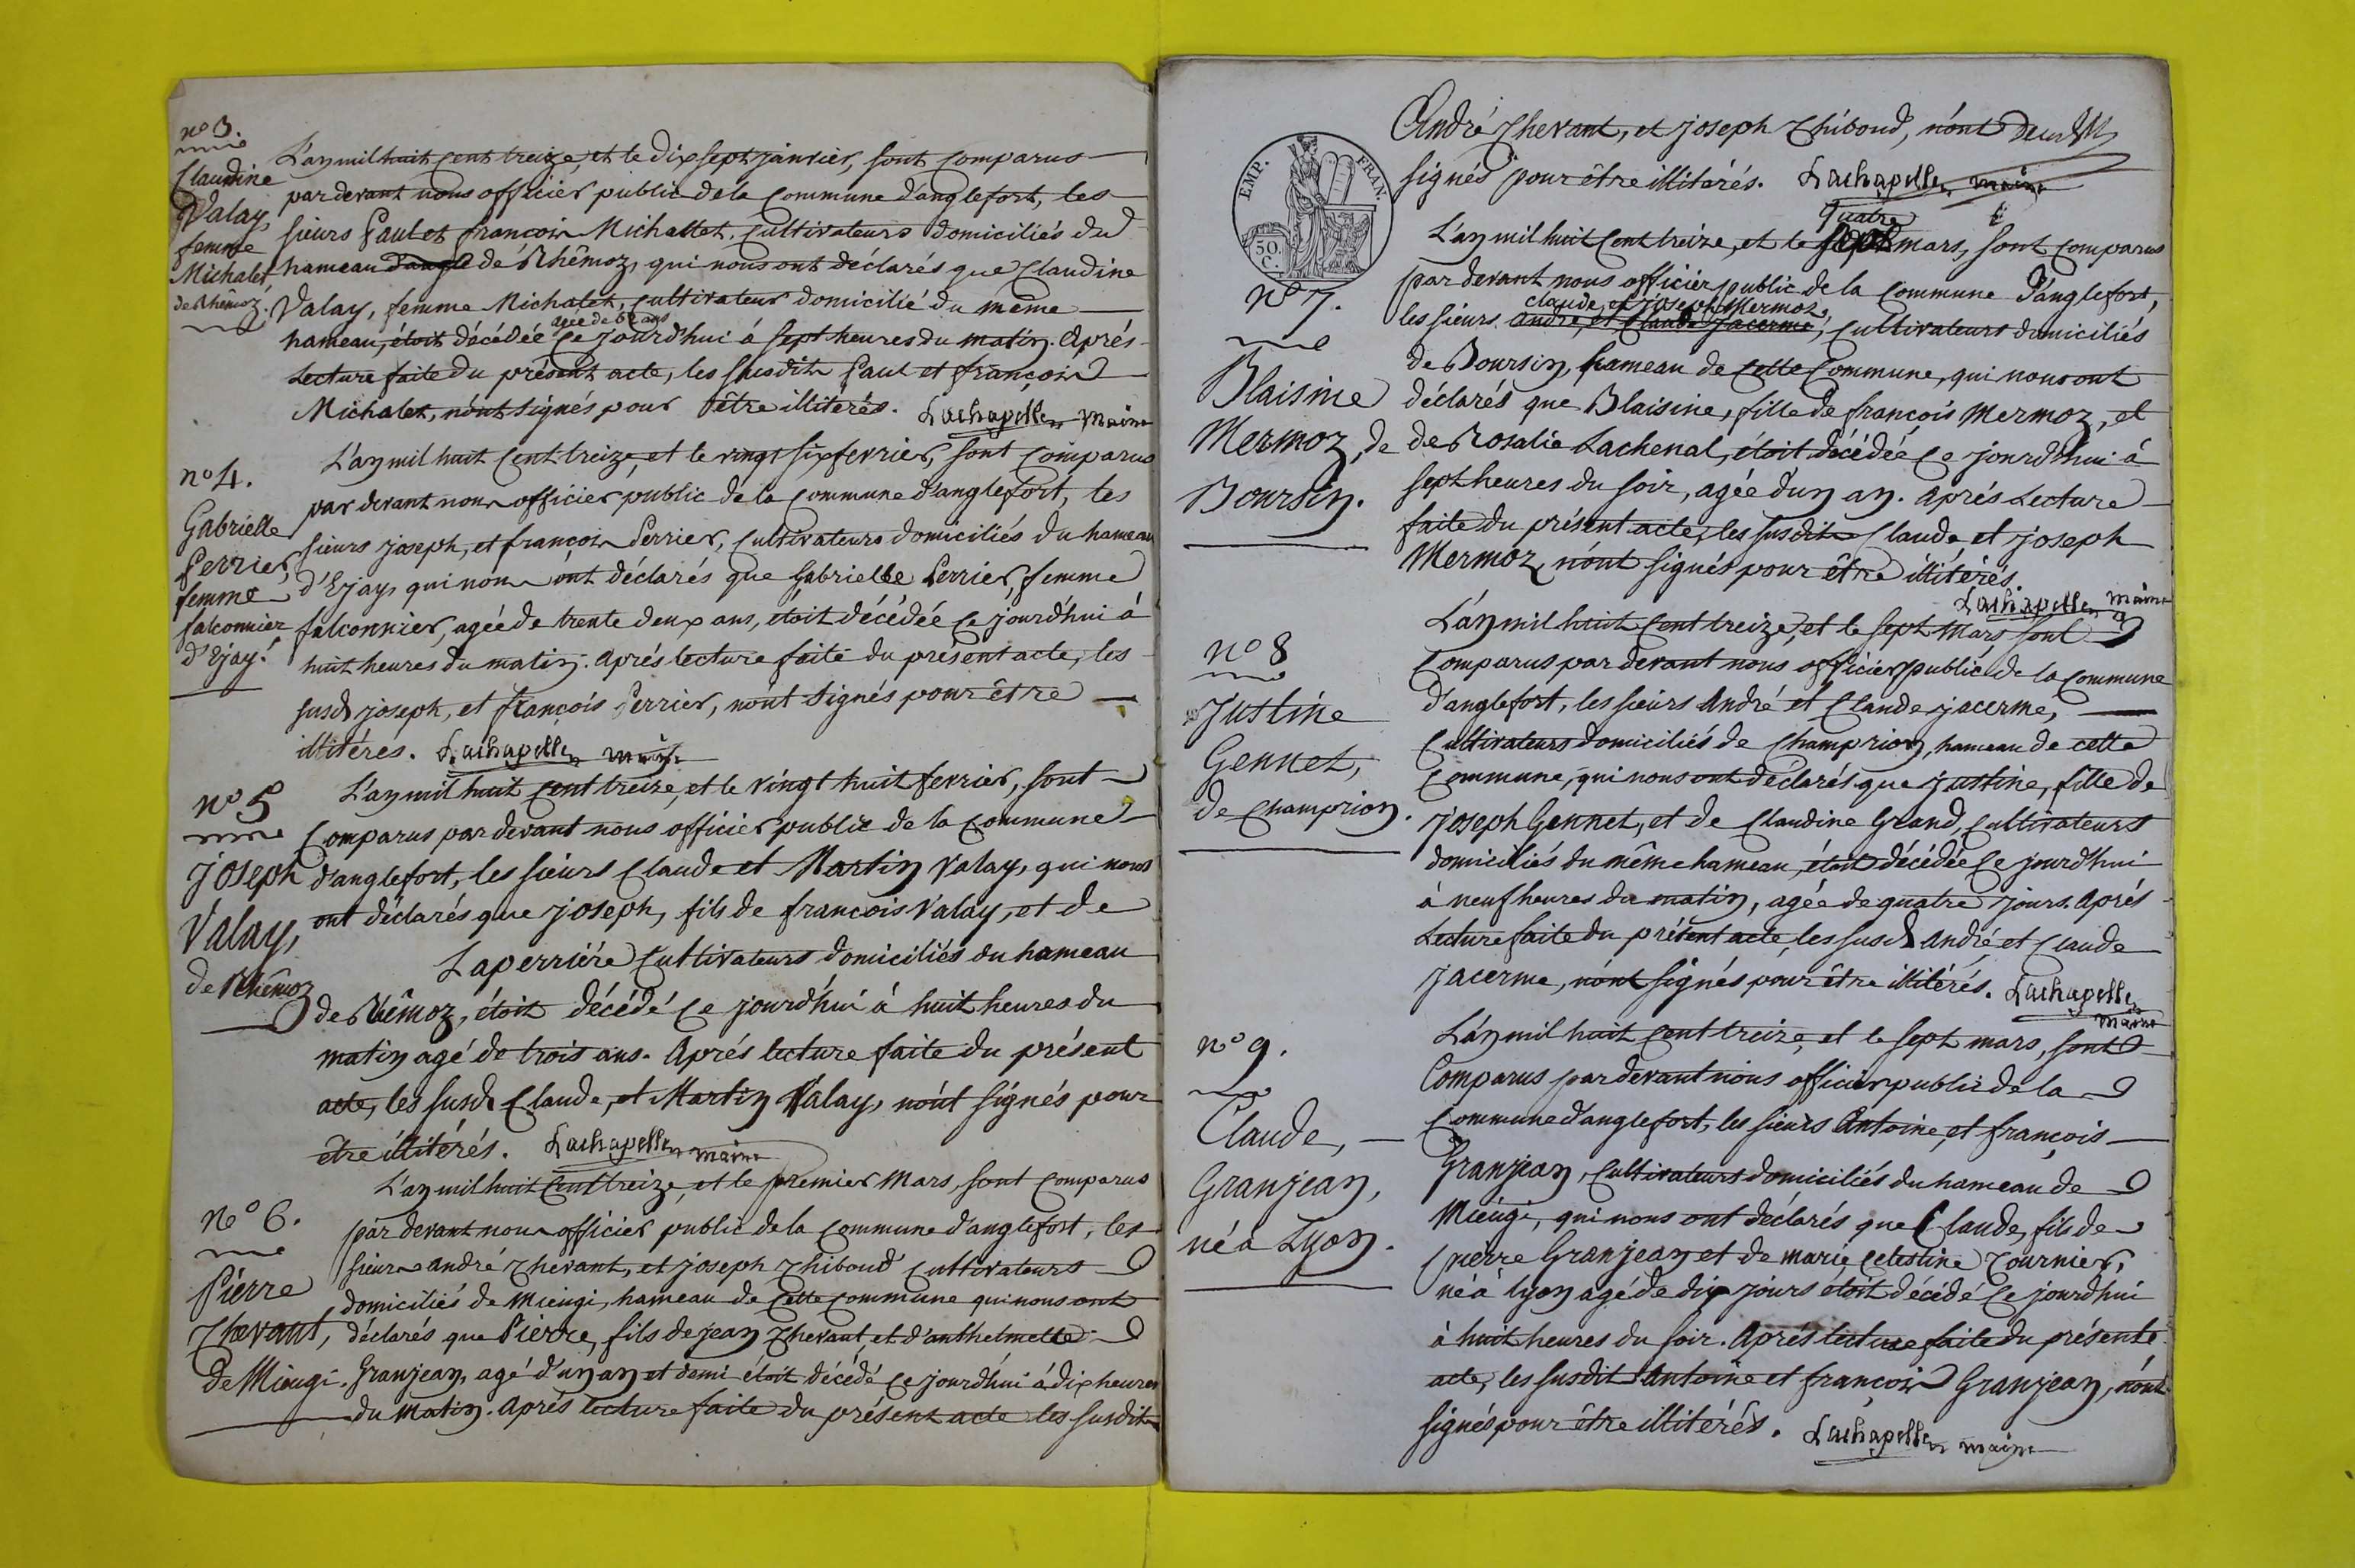 n° 3.
Claudine
Valay,
femme
Michalet
de Rhêmoz.
L'an mil huit cent treize, et le dix sept janvier, sont comparus
par devant nous officier public de la commune d'anglefort, les
sieurs Paul et françois Michallet, cultivateurs domiciliés du
hameau d'angle de Rhêmoz, qui nous ont déclarés que Claudine
Valay, femme Michalet, cultivateur domicilié du même
agée de ans
hameau, étoit décédée ce jourd'hui à sept heures du matin. Aprés
Lecture faite du présent acte, les susdits Paul et françois
Michalet, n'ont signés pour être illiterés. Lachapelle, maire
n° 4.
Gabrielle
Perrier,
femme
falconnier
d'Ejay.
L'an mil huit cent treize, et le vingt six fevrier, sont comparus
par devant nous officier public de la commune d'anglefort, les
sieurs joseph, et françois Perrier, cultivateurs domiciliés du hameau
d'Ejay, qui nous ont déclarés que Gabrielle Perrier, femme
falconnier, agée de trente deux ans, étoit décédée ce jourd'hui à
huit heures du matin. Aprés lecture faite du présent acte, les
susd joseph, et françois Perrier, n'ont signés pour être
illitéres. Lachapelle, maire
n° 5
joseph
Valay,
de Rhêmoz
L'an mil huit cent treize, et le vingt huit fevrier, sont
comparus par devant nous officier public de la commune
d'anglefort, les sieurs Claude et Martin Valay, qui nous
ont déclarés que joseph, fils de françois Valay, et de
Laperriére cultivateurs domiciliés du hameau
de Rhêmoz, étoit décédé ce jourd'hui à huit heures du
matin agé de trois ans. Aprés lecture faite du présent
acte, les susd Claude, et Martin Valay, n'ont signés pour
être illitérés. Lachapelle, maire
N° 6.
Piérre
Thevant,
de Miéugi.
L'an mil huit cent treize, et le premier Mars, sont comparus
par devant nous officier public de la commune d'anglefort, les
sieurs andré Thevant, et joseph Thiboud cultivateurs
domiciliés de Miéugi, hameau de cette commune qui nous ont
déclarés que Piérre, fils de jean Thevant, et d'anthelmette
Granjean, agé d'un an et demi étoit décédé ce jourd'hui à dix heures
du matin. Aprés lecture faite du présent acte les susdits
André Thevant, et joseph Thiboud, n'ont
signés pour être illitarés. Lachapelle, maire
EMP. FRAN.
50.
C.
n° 7.
Blaisine
Mermoz, de
Boursin.
quatre
L'an mil huit cent treize, et le sept mars, sont comparus
par devant nous officier public de la commune d'anglefort,
claude, et joseph Mermoz,
les sieurs andré, et Claude jacerme, cultivateurs domiciliés
de Boursin, hameau de cette commune, qui nous ont
déclarés que Blaisine, fille de françois Mermoz, et
de Rosalie Lachenal, étoit décédée ce jourd'hui à
sept heures du soir, agée d'un an. Aprés Lecture
faite du présent acte, les susdits Claude, et joseph
Mermoz, n'ont signés pour être illitérés.
Lachapelle, maire
n° 8
Justine
Gennet,
de Champrion.
L'an mil huit cent treize, et le sept Mars, sont
comparus par devant nous officier public de la commune
d'anglefort, les sieurs André et Claude jacerme,
cultivateurs domiciliés de Champrion, hameau de cette
commune, qui nous ont déclarés que justine, fille de
joseph Gennet, et de Claudine Grand, cultivateurs
domiciliés du même hameau, étoit décédée ce jourd'hui
à neuf heures du matin, agée de quatre jours. Aprés
Lecture faite du présent acte, les susd André, et Claude
jacerme, n'ont signés pour être illitérés. Lachapelle,
maire
n° 9.
Claude,
Granjean,
né à Lyon.
L'an mil huit cent treize, et le sept mars, sont
Comparus par devant nous officier public de la
commune d'anglefort, les sieurs Antoine, et françois
Granjean, cultivateurs domiciliés du hameau de
Miéugi, qui nous ont déclarés que Claude, fils de
pierre Granjean et de marie Celestine Tournier,
né à lyon agé de dix jours étoit décédé ce jourd'hui
à huit heures du soir. Aprés lecture faite du présente
acte, les susdit Antoine et françois Granjean, n'ont
signés pour être illitérés. Lachapelle, maire